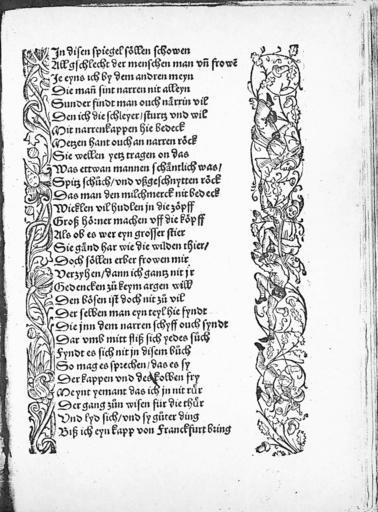 In disen spiegel söllen schowen
All gschlecht der menschen man vñ frowē
Je eyns ich by dem andren meyn
Die man̄ sint narren nit alleyn
Sunder findt man ouch närrin vil
Den ich die schleyer/sturtz vnd wil
Mit narrenkappen hie bedeck
Metzen hant ouch an narren röck
Sie wellen yetz tragen on das
Was ettwan mannen schäntlich was/
Spitz schůch/vnd vßgeschnytten röck
Das man den milchmerck nit bedeck
Wicklen vil hudlen jn die zöpff
Groß hörner machen vff die köpff
Als ob es wer eyn grosser stier
Sie gänd har wie die wilden thier/
Doch söllen erber frowen mir
Verzyhen/dann ich gantz nit jr
Gedencken zů keym argen will
Den bösen ist doch nit zů vil
Der selben man eyn teyl hie fyndt
Die jnn dem narren schyff ouch syndt
Dar vmb mitt fliß sich yedes sůch
Fyndt es sich nit jn disem bůch
So mag es sprechen/das es sy
Der kappen vnd des kolben fry
Meynt yemant das ich jn nit rür
Der gang zůn wisen für die thür
Vnd lyd sich/vnd sy gůter ding
Biß ich eyn kapp von Franckfurt bring